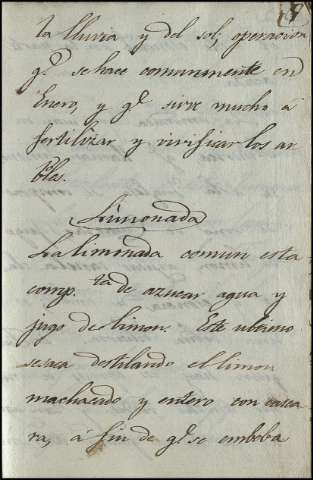 la lluvia y del sol; operacion
q.e se hace comunmente en
Enero, y q.e sirve mucho á
fertilizar y vivificar los ar
bles.
Limonada
La liminada comun esta
comp.ta de azucar agua y
jugo de limon. Este ultimo
se saca destilando el limon
machacado y entero con casca
ra, á fin de q.e se embeba